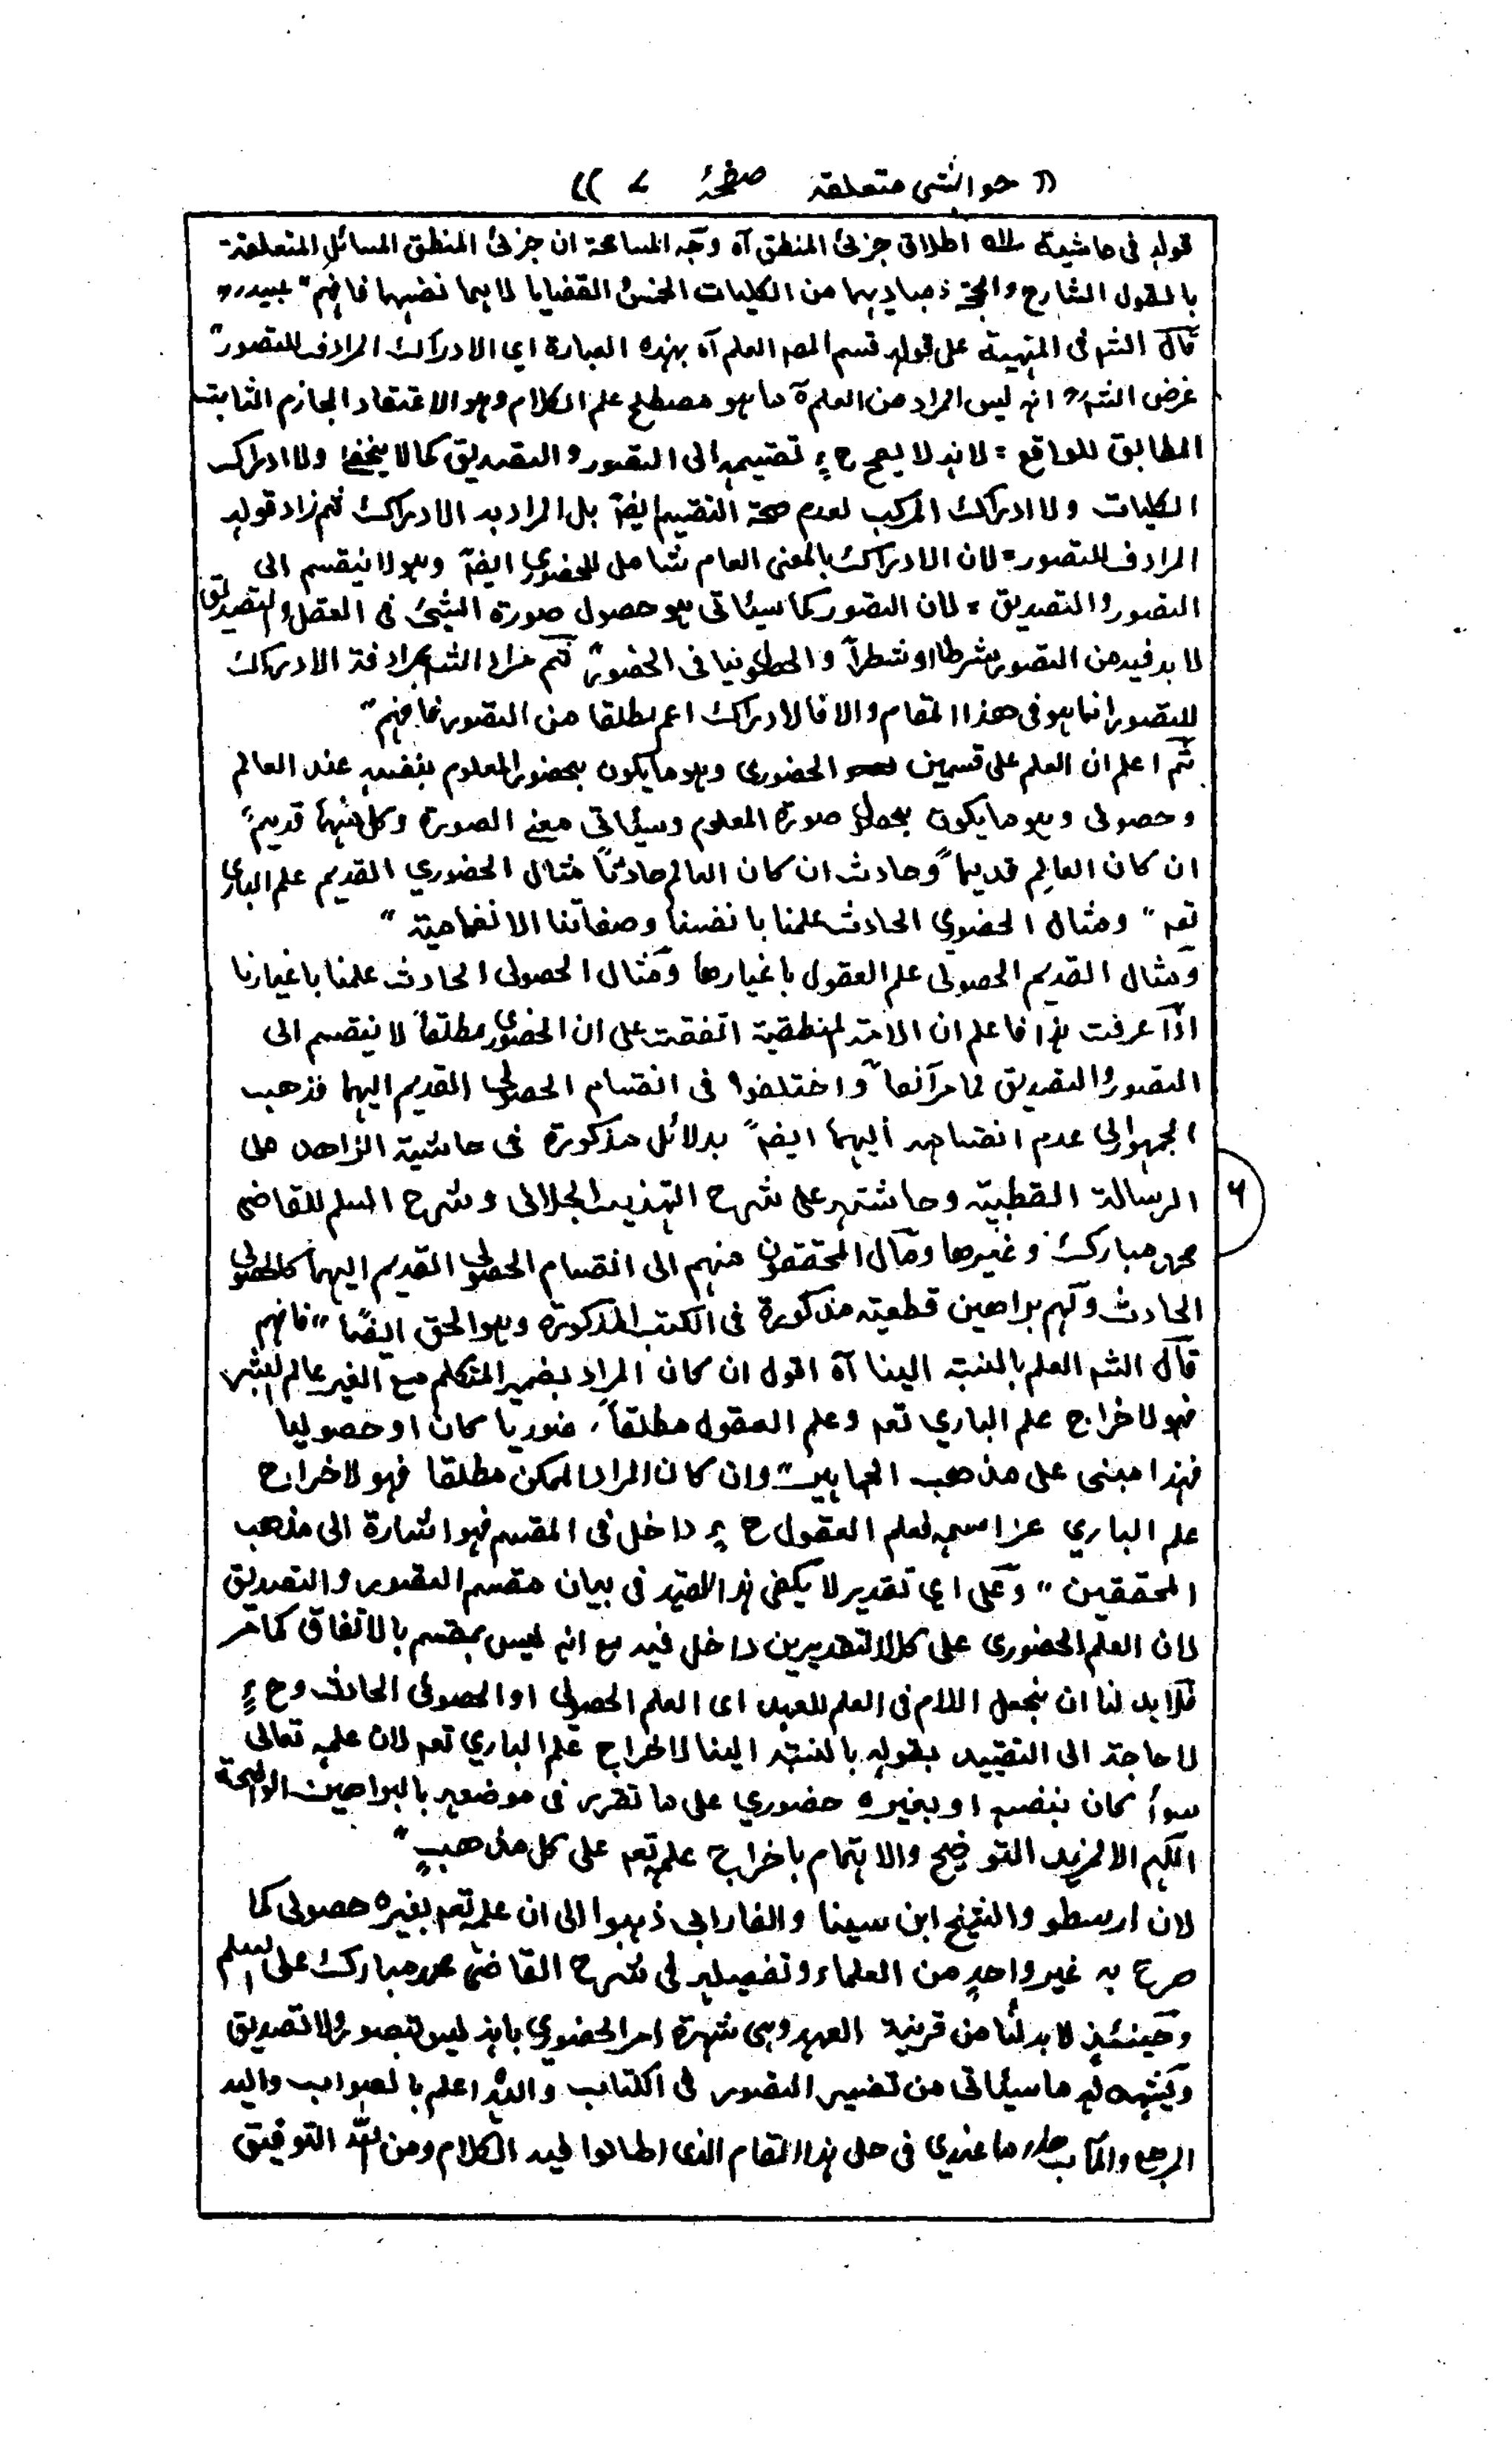 (( حواشی متعلقہ صفحۂ ۷ ))
قوله فی حاشیة اطلاق جزئی المنطق آه وجه المسامحة ان جزئی المنطق المسائل المتعلقة
بالقول الشارح والحجة ومبادیہما من الکلیات الخمس والقضایا لا ہما نفسہما فافہم"
قال الشه فی المنہیة علی قوله قسم المصہ العلم آه بہذه العبارة ای الادراک المرادف للتصور"
غرض الشه انہ لیس المراد من العلم ما ہو مصطلح علم الکلام وہو الاعتقاد الجازم الثابت
المطابق للواقع = لانہ لا یصح ح تقسیمہ الی التصور والتصدیق کما لا یخفی ولا ادراک
الکلیات ولا ادراک المرکب لعدم صحة التقسیم ایضہ بل المراد به الادراک ثم زاد قولہ
المرادف للتصور = لان الادراک بالمعنی العام شامل للحضوری ایضہ وہو لا ینقسم الی
التصور والتصدیق = لان التصور کما سیأتی ہو حصول صورة الشیٔ فی العقل والتصدیق
لا بد فیه من التصور شرطا او شطراً فی الحضوری ثم مراد الشہ بمرادفة الادراک
للتصور انما ہو فی هذا المقام والا فالادراک اعم مطلقا من التصور فافہم"
ثم اعلم ان العلم علی قسمین الحضوری وہو ما یکون بحضور المعلوم بنفسہ عند العالم
وحصولی وہو ما یکون بحصول صورة المعلوم وسیأتی معنی الصورة وکل منہما قدیم"
ان کان العالم قدیما وحادث ان کان العالم حادثاً مثال الحضوري القدیم علم الباری
تعہ" ومثال الحضوري الحادث علمنا بانفسنا وصفاتنا الانضمامیة"
ومثال القدیم الحصولی علم العقول باغیارها ومثال الحصولی الحادث علمنا باغیارنا
اذا عرفت ہذا فاعلم ان الائمة المنطقیة اتفقت علی ان الحضوری مطلقاً لا ینقسم الی
التصور والتصدیق لما مر آنفاً واختلفوا فی انقسام الحصولی القدیم الیہما فذهب
الجمہور الی عدم انقسامہ الیہما ایضہ بدلائل مذکورة فی حاشیة الزاهد علی
الرسالة القطبیة وحاشیتہ علی شرح التہذیب الجلالی وشرح السلم للقاضی
۶
محمد مبارک وغیرها ومال المحققون منہم الی انقسام الحصولی القدیم الیہما کالحصولی
الحادث ولہم براهین قطعیة مذکورة فی الکتب المذکورة وہو الحق ایضاً" فافہم
قال الشہ العلم بالنسبة الینا آه اقول ان کان المراد بضمیر المتکلم مع الغیر عالم البشر
فہو لاخراج علم الباري تعہ وعلم العقول مطلقاً، حضوریا کان او حصولیا
فہذا مبنی علی مذهب الجماہیر" وان کان المراد الممکن مطلقا فہو لاخراج
علم الباري عز اسمہ فعلم العقول ح داخل فی المقسم فہو اشارة الی مذهب
المحققین" وعلی ای تقدیر لا یکفی ہذا القید فی بیان مقسم التصور والتصدیق
لان العلم الحضوری علی کلا التقدیرین داخل فیه مع انہ لیس بمقسم بالاتفاق کما مر
فلا بد لنا ان نجعل اللام فی العلم للعہد ای العلم الحصولی او الحصولی الحادث وح
لا حاجة الی التقیید بقولہ بالنسبة الینا لاخراج علم الباري تعہ لان علمہ تعالی
سوأ کان بنفسہ او بغیره حضوري علی ما تقرر فی موضعہ بالبراهین الواضحة
اللہم الا لمزید التوضیح والاہتمام باخراج علمہ تعہ علی کل مذهبٍ"
لان ارسطو والشیخ ابن سینا والفارابی ذہبوا الی ان علمہ تعہ بغیره حصولی کما
صرح به غیر واحدٍ من العلماء وتفصیلہ فی شرح القاضی محمد مبارک علی السلم
وحینئذٍ لا بد لنا من قرینة العہد وہی شہرة امر الحضوري بانہ لیس بتصور ولا تصدیق
ویشہد لہ ما سیأتی من تفسیر التصور فی الکتاب واللہ اعلم بالصواب والیه
المرجع والمآب ہذا ما عندي فی حل ہذا المقام الذی اطالوا فیه الکلام ومن اللہ التوفیق